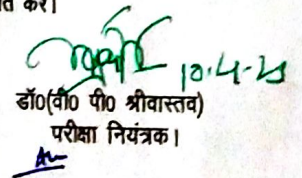 त करें।
10.4.23
डॉ0(वी0 पी0 श्रीवास्तव)
परीक्षा नियंत्रक।